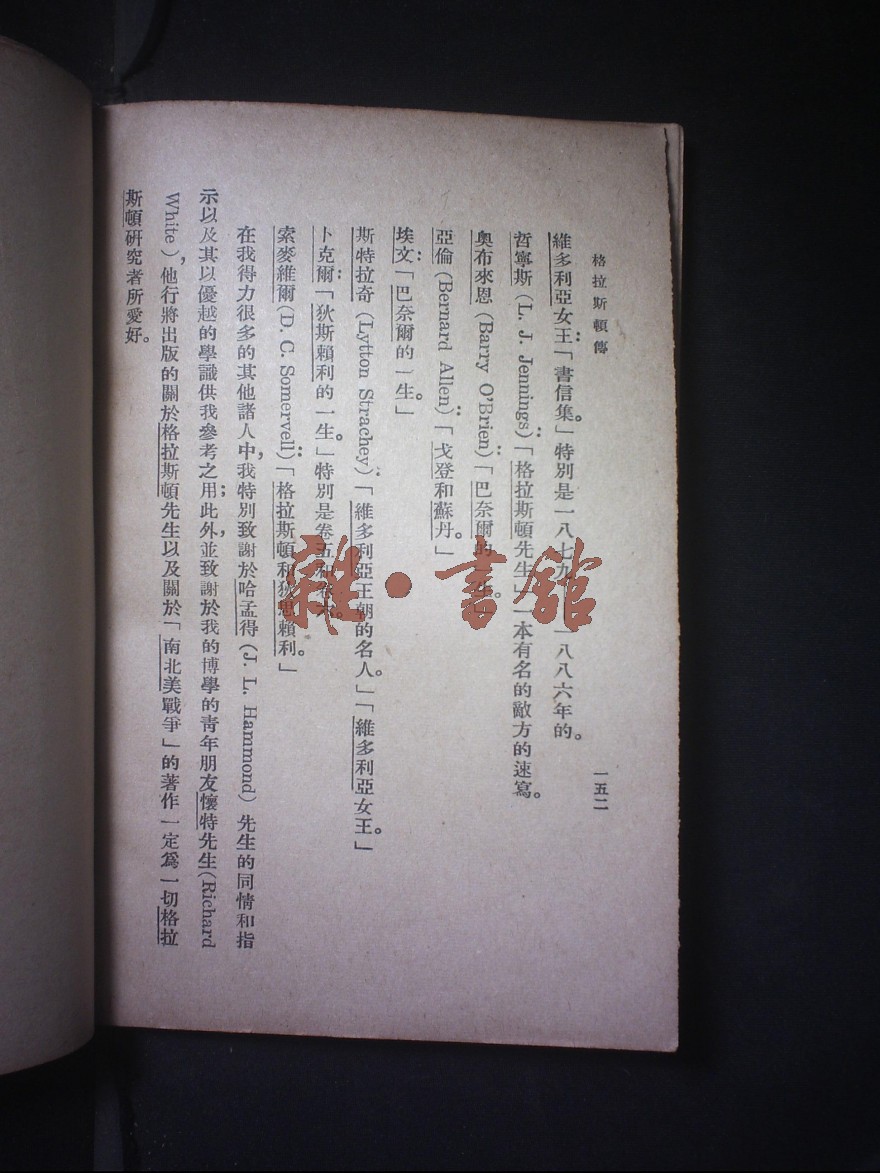 格拉斯頓傳
一五二
維多利亞女王:「書信集。」特別是一八七九 一八八六年的。
哲寧斯(L. J. Jennings):「格拉斯頓先生」一本有名的敵方的速寫。
奧布來恩(Barry O'Brien):「巴奈爾的一生。」
亞倫(Bernard Allen):「戈登和蘇丹。」
埃文:「巴奈爾的一生。」
斯特拉奇(Lytton Strachey):「維多利亞王朝的名人。」「維多利亞女王。」
卜克爾:「狄斯賴利的一生。」特別是卷五和卷六。
索麥維爾(D. C. Somervell):「格拉斯頓和狄思賴利。」
在我得力很多的其他諸人中,我特別致謝於哈孟得(J. L. Hammond)先生的同情和指
示以及其以優越的學識供我參考之用;此外,並致謝於我的博學的青年朋友懷特先生(Richard
White),他行將出版的關於格拉斯頓先生以及關於「南北美戰爭」的著作一定爲一切格拉
斯頓研究者所愛好。
雜·書館